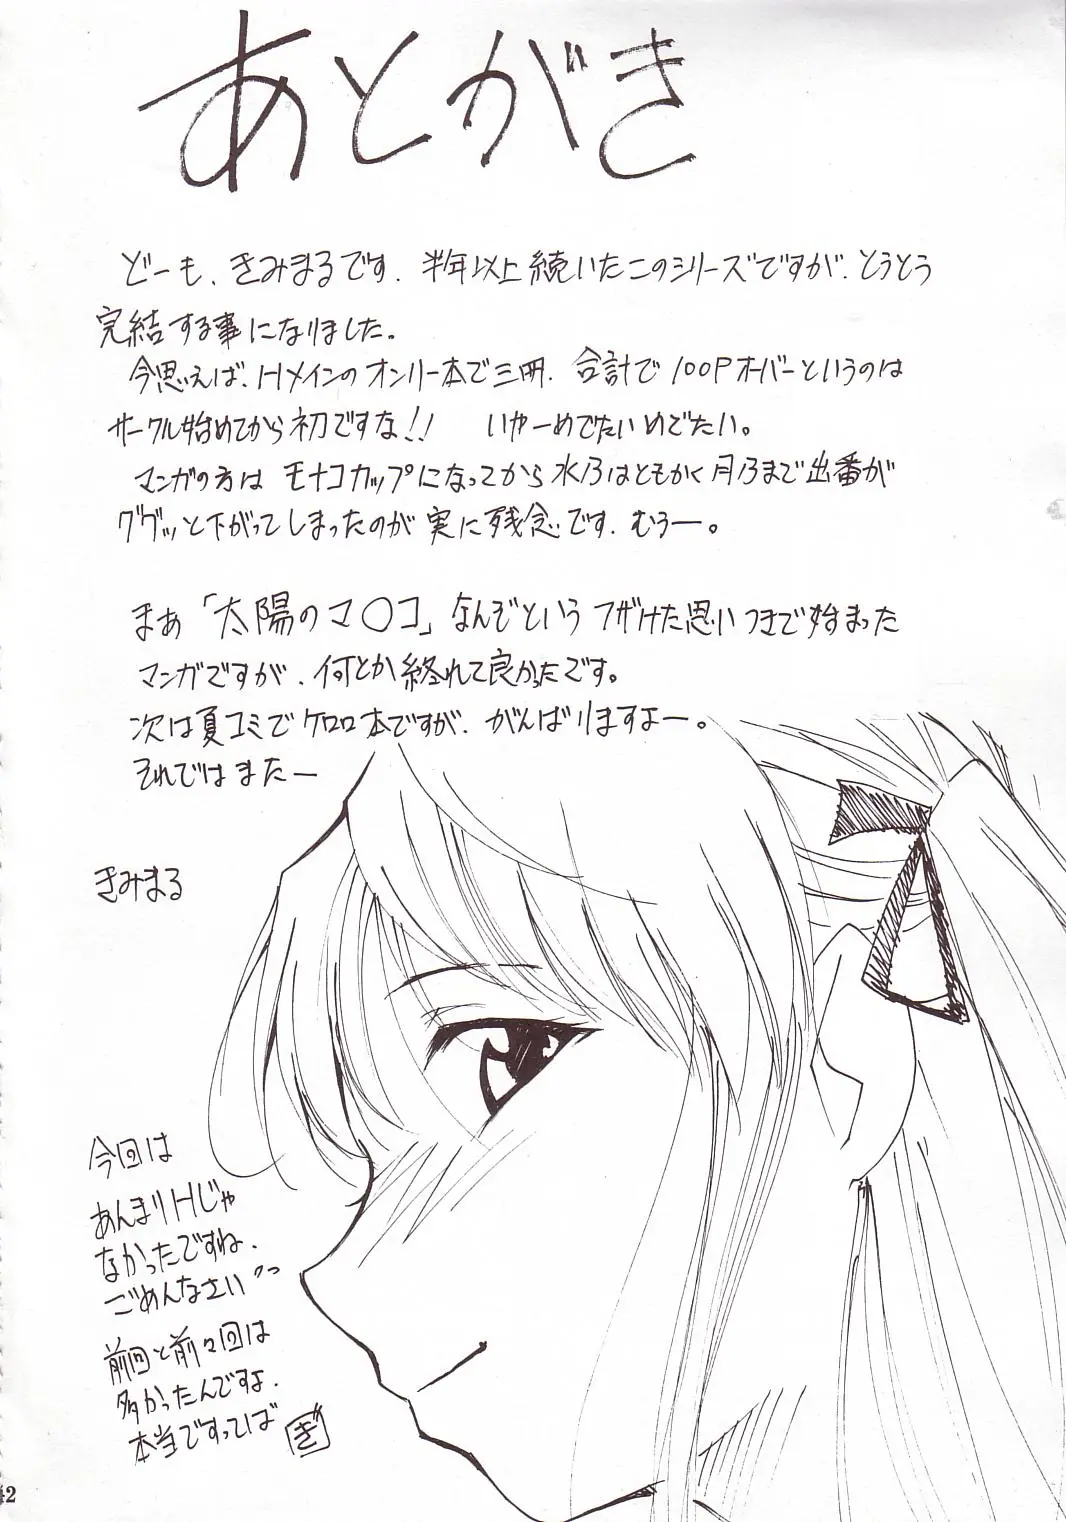 あとがき
どーも、きみまるです. 半年以上続いたこのシリーズですが、とうとう
完結する事になりました。
今思えば、Hメインのオンリー本で三冊、合計で100Pオーバーというのは
サークル始めてから初ですな!! いやーめでたいめでたい。
マンガの方はモナコカップになってから水乃はともかく月乃まで出番が
ググッと下がってしまったのが実に残念です. むぅー。
まぁ「太陽のマ○コ」なんぞというフザけた思いつきで始まった
マンガですが、何とか終れて良かったです。
次は夏コミでケロロ本ですが、がんばりますよー。
それではまたー
きみまる
今回は
あんまりHじゃ
なかったですね.
ごめんなさい
前回と前々回は
多かったんですよ.
本当ですってば
き
42